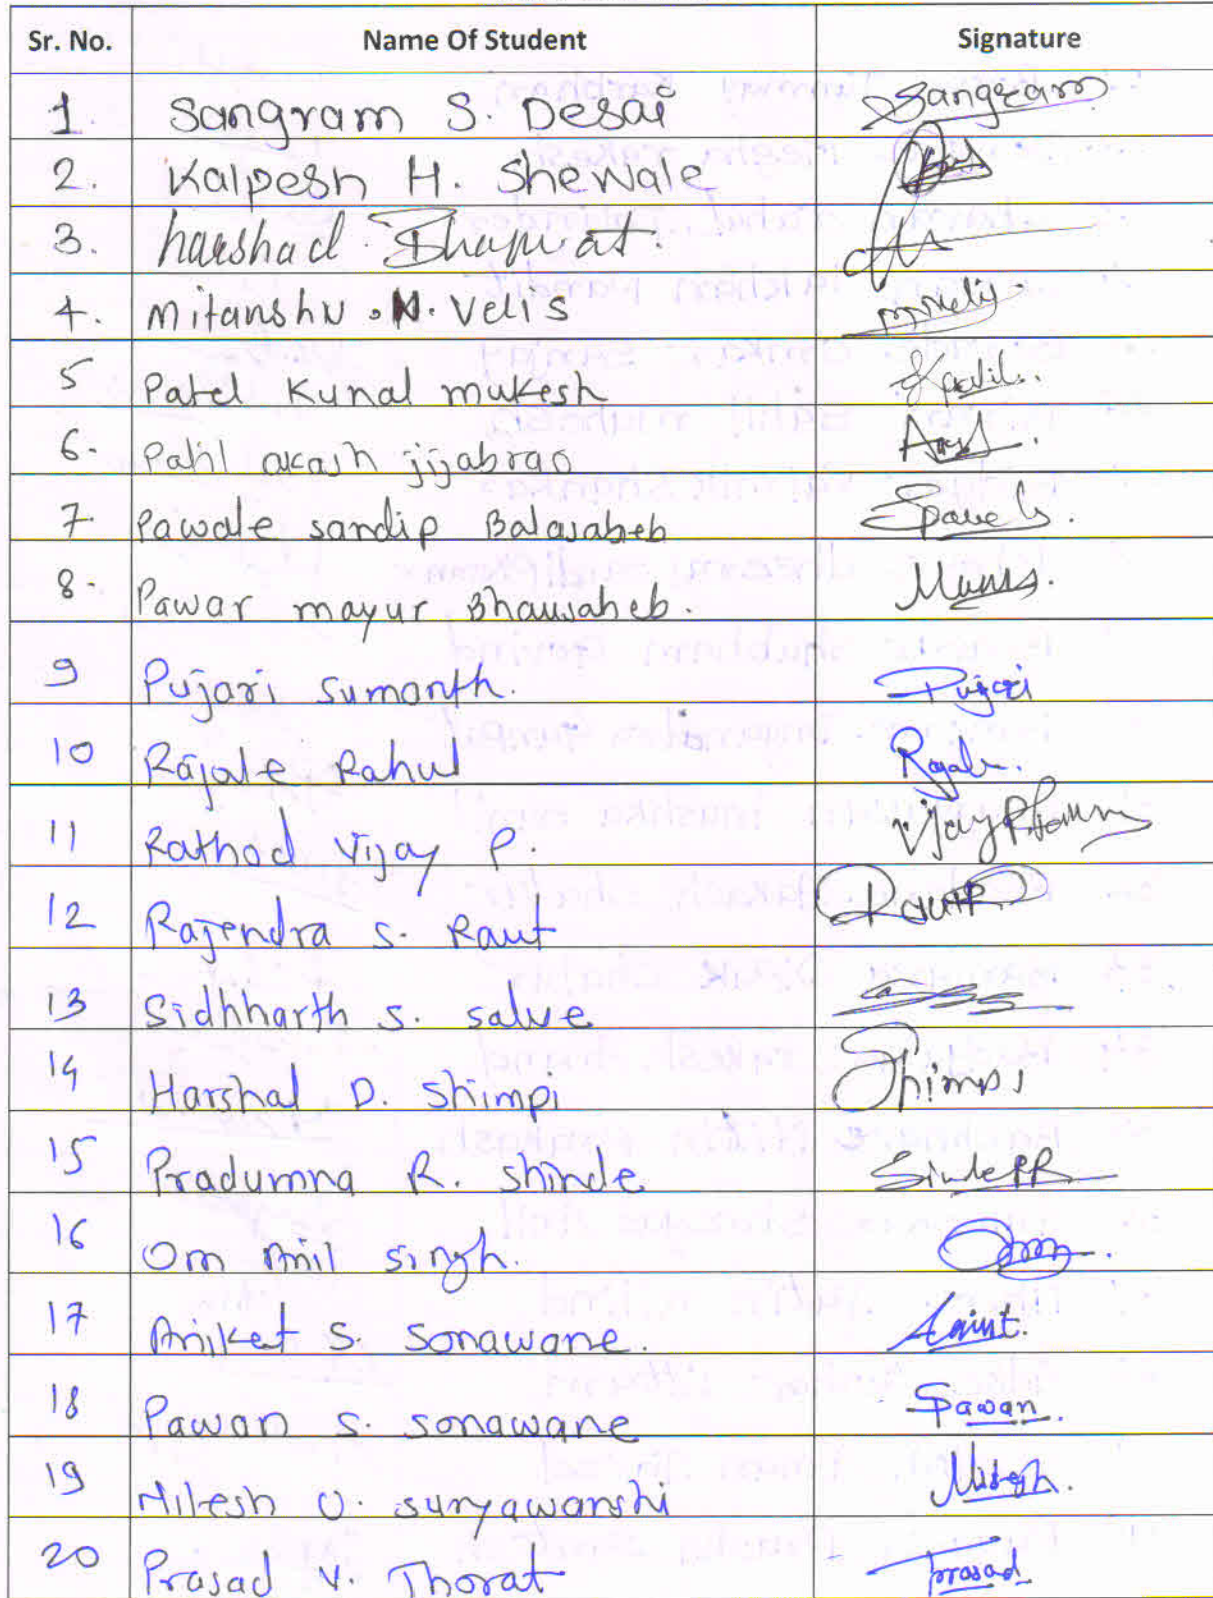 Sr. No. Name Of Student Signature
1. Sangram S. Desai Sangram
2. Kalpesh H. Shewale
3. harshad
4. Mitanshu . N. Velis mvelis
5 Patel Kunal mukesh
6. Patil akash jijabrao
7. Pawale sandip Balasaheb
8. Pawar mayur Bhausaheb.
9 Pujari Sumanth. Pujari
10 Rajale Rahul Rajale.
11 Rathod Vijay P. Vijay
12 Rajendra S. Raut
13 Sidhharth S. salve
14 Harshal D. Shimpi Shimpi
15 Pradumna R. Shinde
16 Om Anil singh. Om
17 Aniket S. Sonawane.
18 Pawan S. Sonawane Pawan.
19 Nilesh U. suryawanshi
20 Prasad V. Thorat Prasad